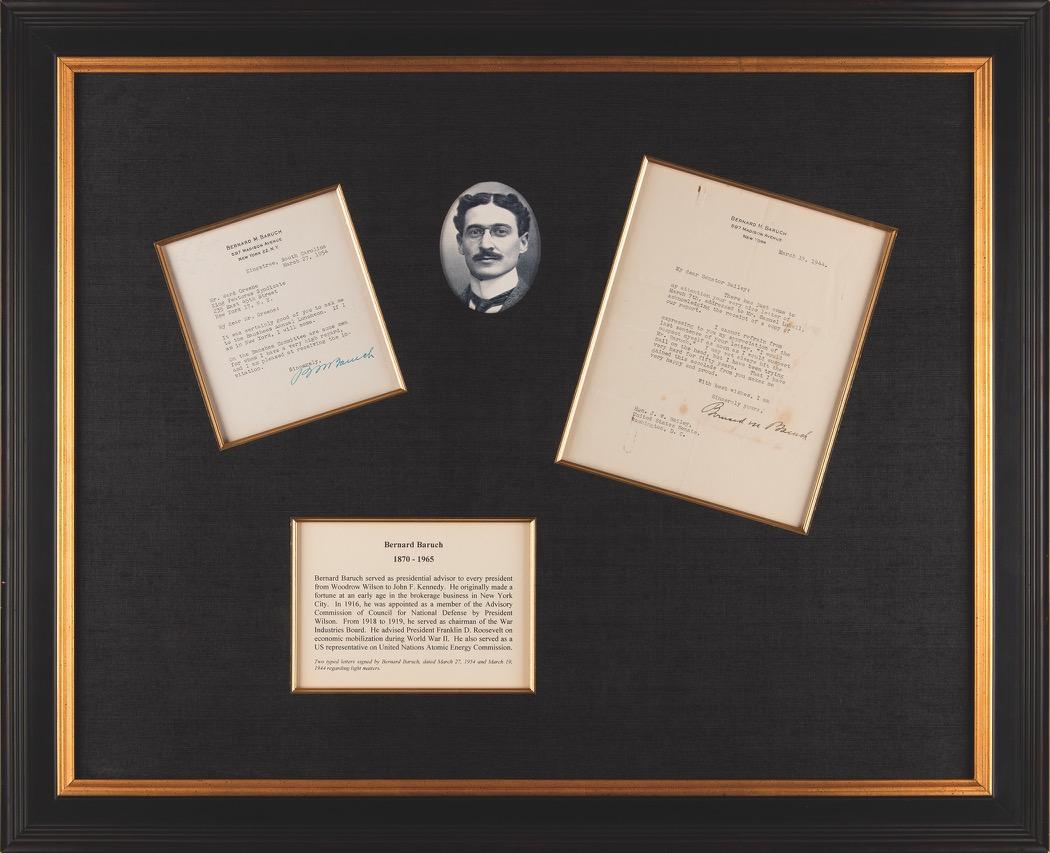 BERNARD M. BARUCH
597 MADISON AVENUE
NEW YORK 22, N.Y.
Kingstree, South Carolina
March 27, 1954
Mr. Ward Greene
King Features Syndicate
235 East 45th Street
New York 17, N. Y.
My dear Mr. Greene:
It was certainly good of you to ask me
to the Banshees Annual Luncheon. If I
am in New York, I will come.
On the Banshee Committee are some men
for whom I have a very high regard,
and I am pleased at receiving the in-
vitation.
Sincerely,
B M Baruch
BERNARD M. BARUCH
597 MADISON AVENUE
NEW YORK
March 19, 1944.
My dear Senator Bailey:
There has just come to
my attention your very nice letter of
March 7th, addressed to Mr. Samuel
acknowledging the receipt of a copy of
our report.
I cannot refrain from
expressing to you my appreciation of the
last sentence of your letter, 'I would
suspect myself as soon as I would suspect
Mr. Baruch.' May not always hit the
nail on the head, but I have been trying
very hard for fifty years. That I have
gained this accolade from you makes me
very happy and proud.
With best wishes, I am
Sincerely yours,
Bernard M Baruch
Hon. J. W. Bailey,
United States Senate,
Washington, D. C.
Bernard Baruch
1870 - 1965
Bernard Baruch served as presidential advisor to every president
from Woodrow Wilson to John F. Kennedy. He originally made a
fortune at an early age in the brokerage business in New York
City. In 1916, he was appointed as a member of the Advisory
Commission of Council for National Defense by President
Wilson. From 1918 to 1919, he served as chairman of the War
Industries Board. He advised President Franklin D. Roosevelt on
economic mobilization during World War II. He also served as a
US representative on United Nations Atomic Energy Commission.
Two typed letters signed by Bernard Baruch, dated March 27, 1954 and March 19,
1944 regarding light matters.